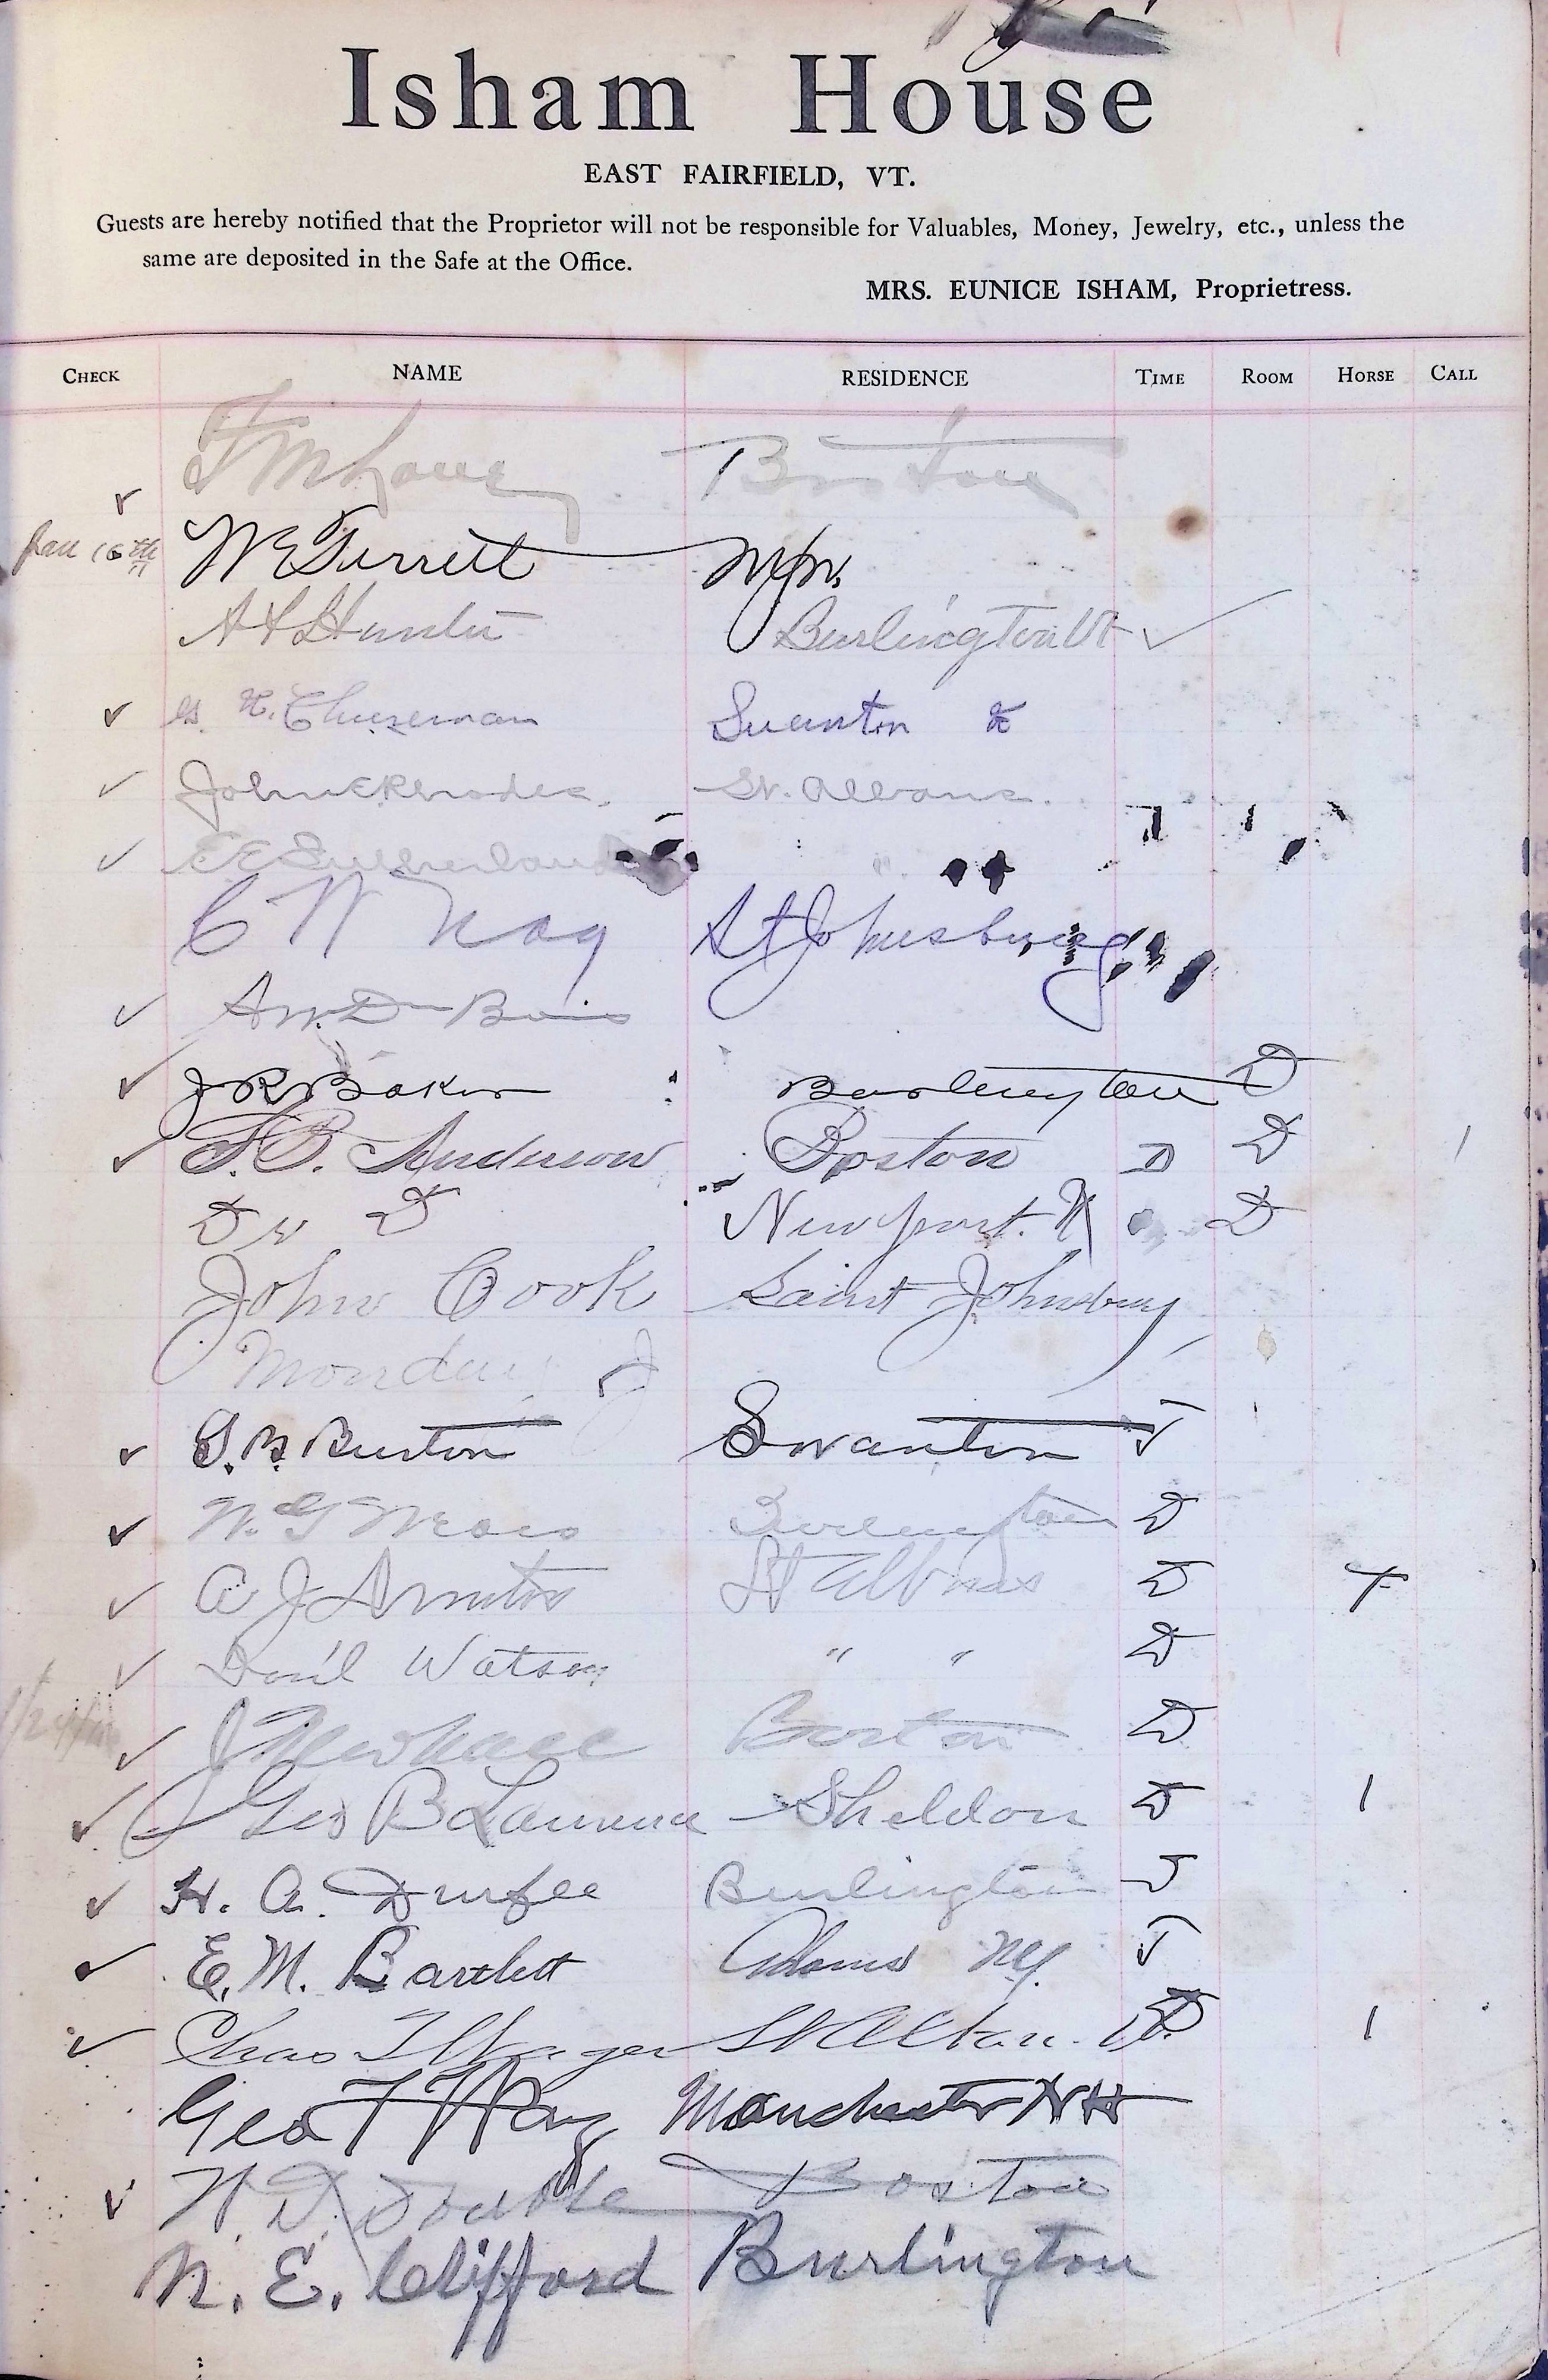 Isham House
EAST FAIRFIELD, VT.
Guests are hereby notified that the Proprietor will not be responsible for Valuables, Money, Jewelry, etc., unless the
same are deposited in the Safe at the Office.
MRS. EUNICE ISHAM, Proprietress.
CHECK NAME RESIDENCE TIME ROOM HORSE CALL
Boston
Jan 16th W E Tirrell
Burlington Vt
Swanton
John E Rhodes. St. Albans.
E E Sutherland "
C W Nay St Johnsbury
J R Baker Burlington D
F. B. Anderson Boston D D
Newport. D
John Cook Saint Johnsbury
Monday
G. B. Burton Swanton
W. G Mears Burlington D
A J St Albans D
Dan'l Watson " " D
J Newhall Boston D
Geo B Lawrence Sheldon 1
H. A. Durfee Burlington
E. M. Bartlett Adams NY.
Chas T Wager St Alban. 1
Geo F Way Manchester N H
W. D. Boston
N. E. Clifford Burlington